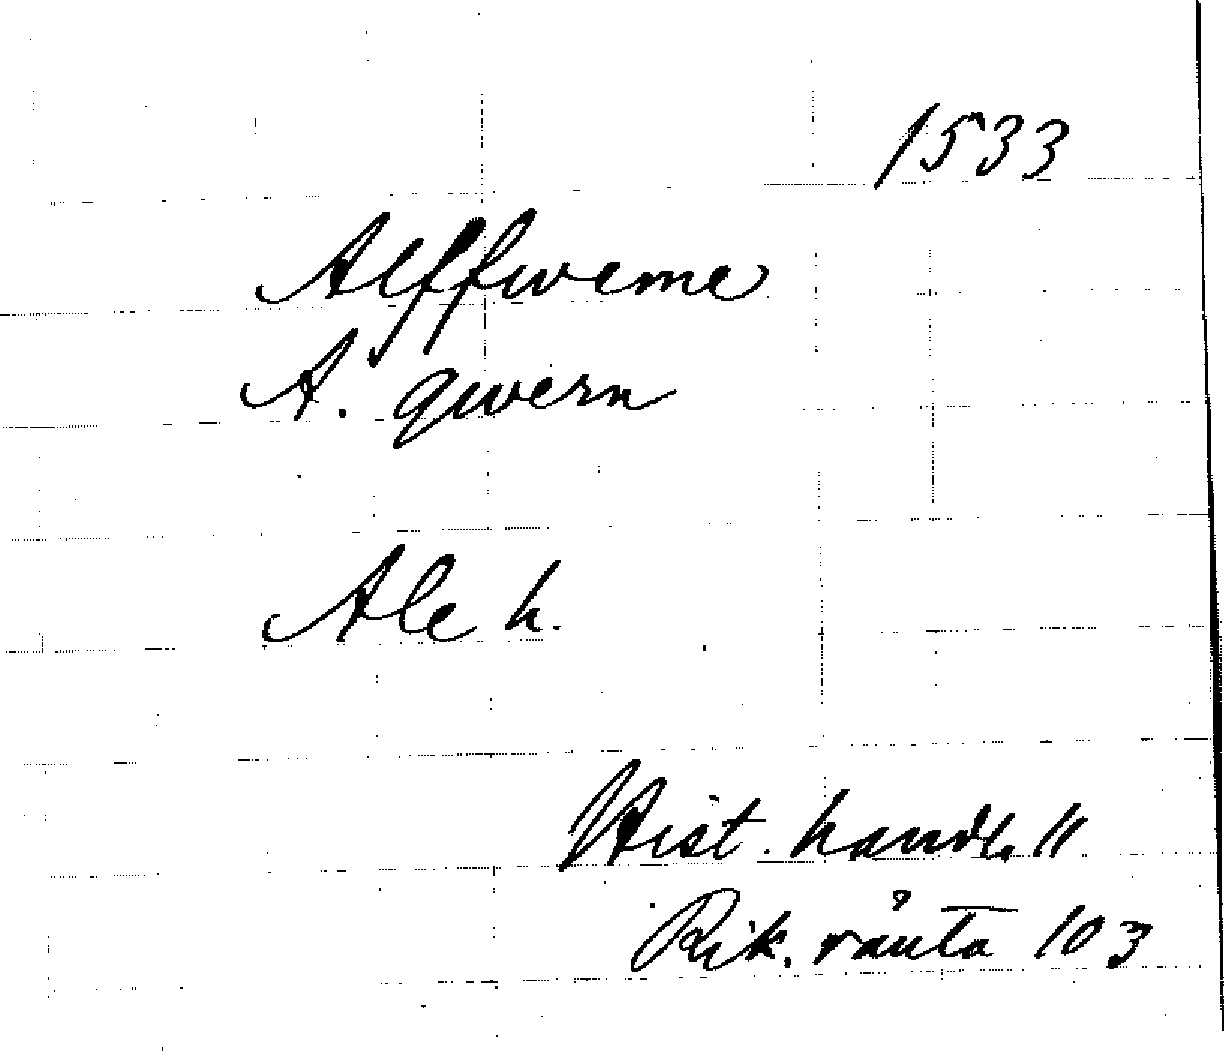 1533
Alffweme
A. qwern
Ale h.
Hist. handl. 11
Rik. ränta 103